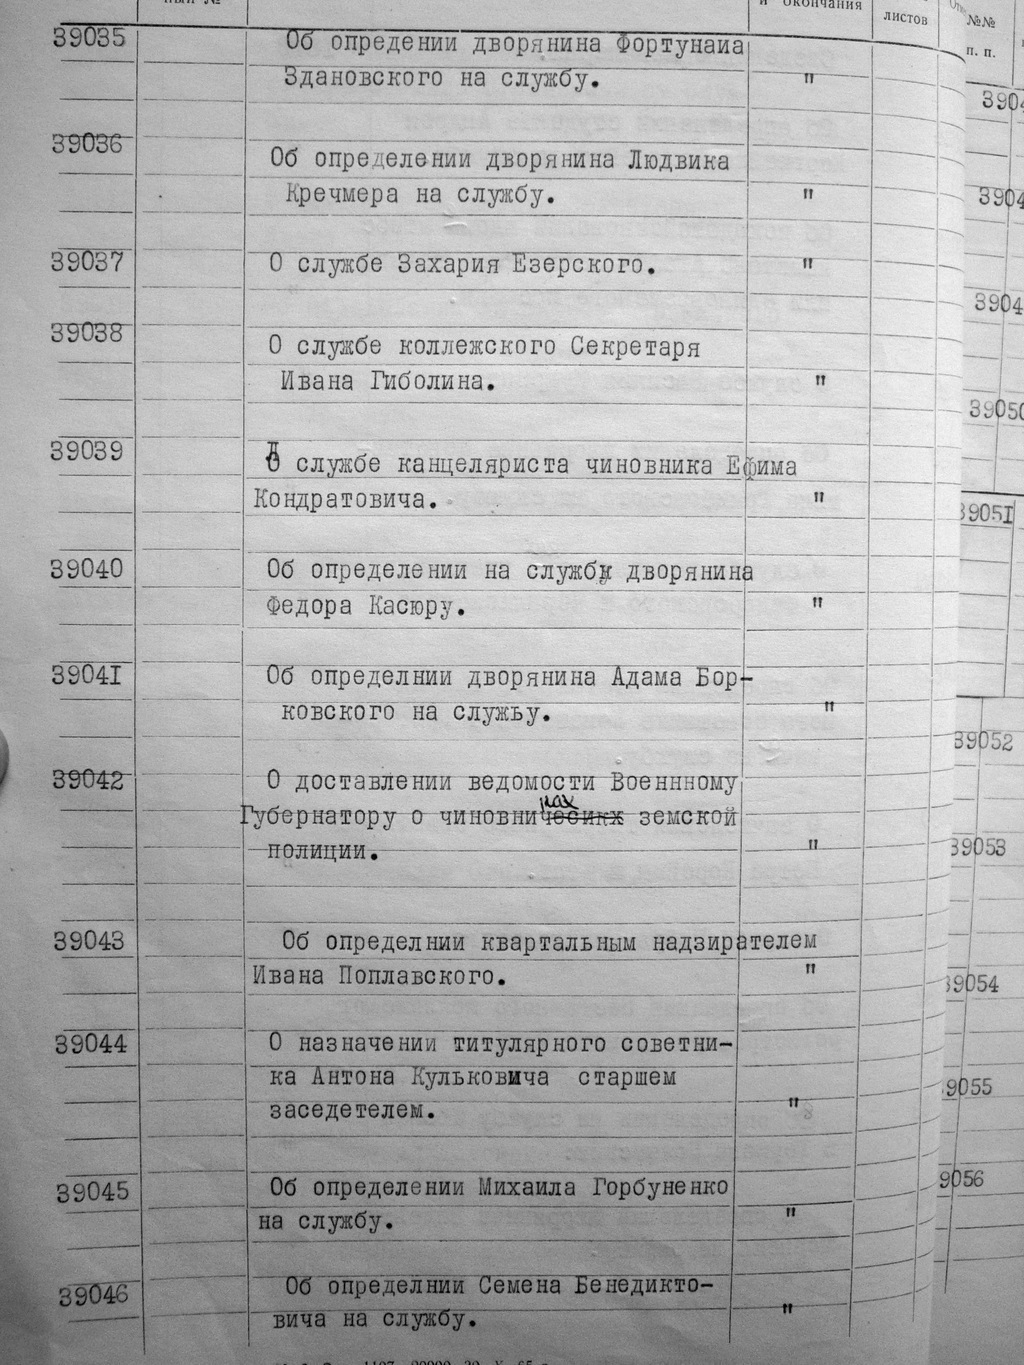 и окончания
листов
№№
п. п.
39035 Об опредении дворянина Фортуната
Здановского на службу. "
39036 Об определении дворянина Людвика
Кречмера на службу. "
39037 О службе Захария Езерского. "
39038 О службе коллежского Секретаря
Ивана Гиболина. "
39039 О службе канцеляриста чиновника Ефима
Кондратовича. "
39040 Об определении на службу дворянина
Федора Касюру. "
39041 Об определнии дворянина Адама Бор-
ковского на служьу. "
39042 О доставлении ведомости Военнному
Губернатору о чиновниках земской
полиции. "
39043 Об определнии квартальным надзирателем
Ивана Поплавского. "
39044 О назначении титулярного советни-
ка Антона Кульковича старшем
заседетелем. "
39045 Об определении Михаила Горбуненко
на службу. "
39046 Об определнии Семена Бенедикто-
вича на службу. "
39050
39051
39052
39053
39054
39055
39056